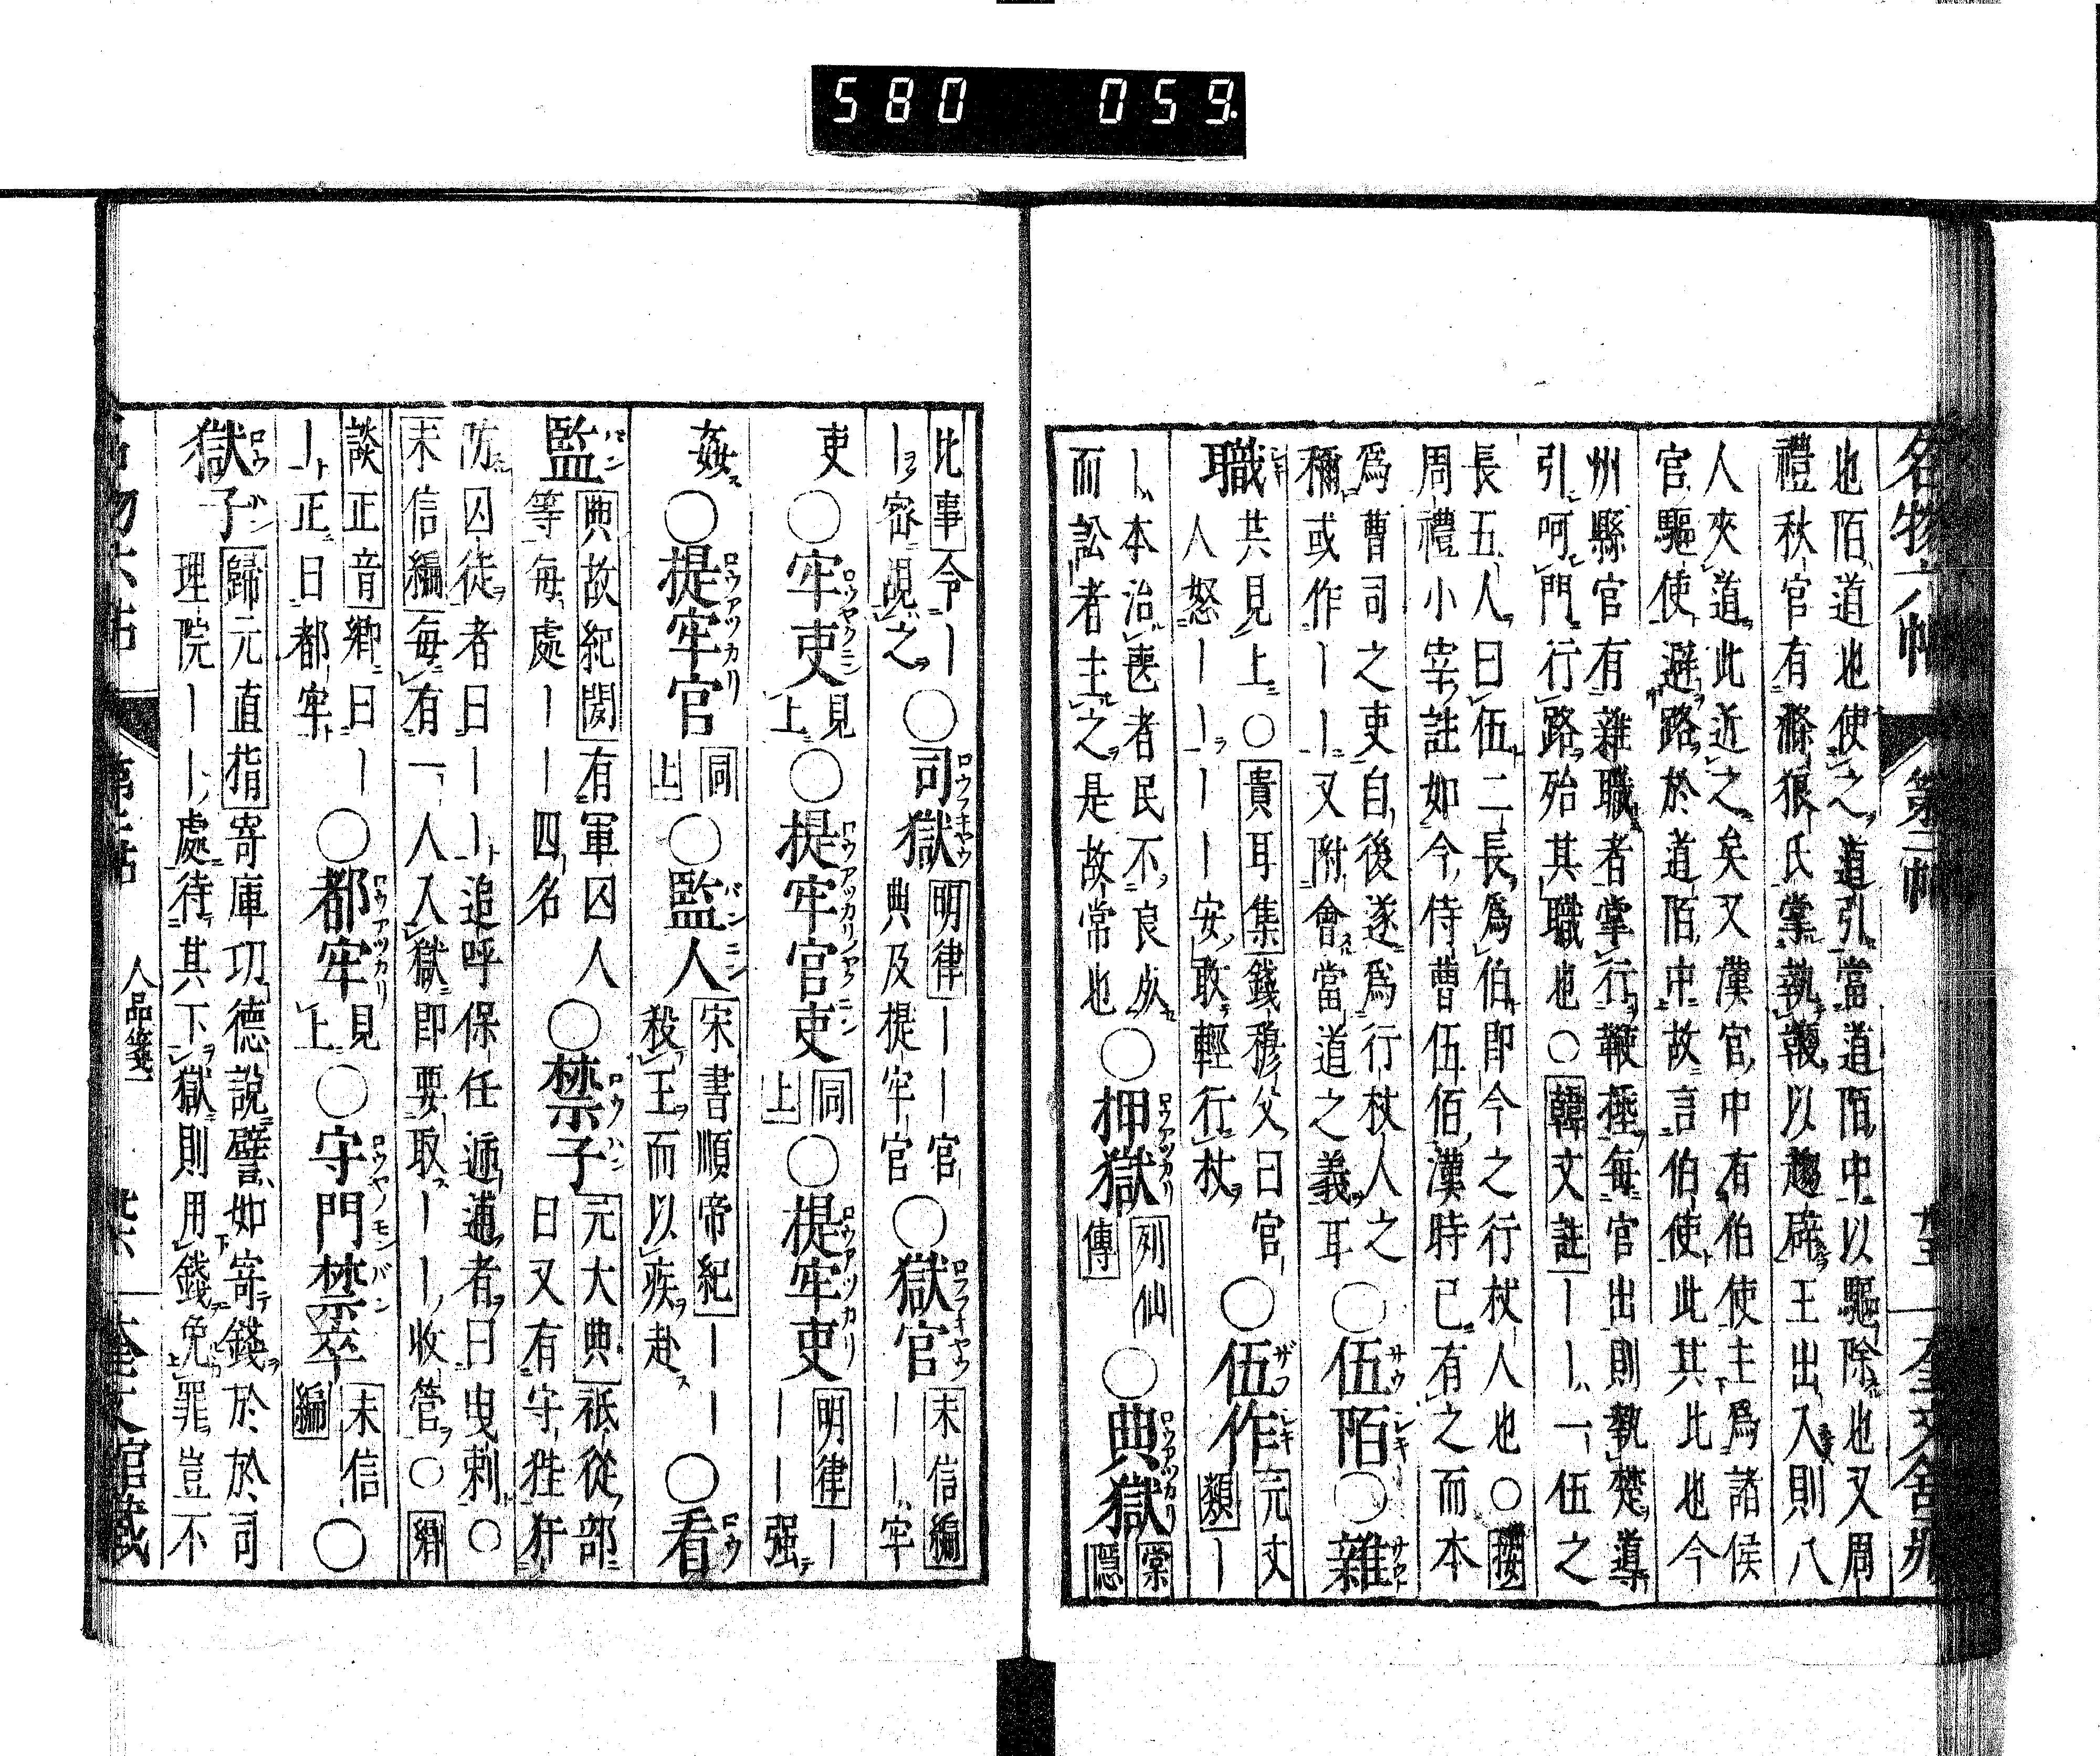 580 059.
名物六帖 第二帖
也陌道也使之道引當道陌中以驅除也又周
禮秋官有滌狼氏掌執鞭以趨辟王出入則八
人夾道此近之矣又漢官中有伯使主爲諸侯
官驅使避路於道陌中故言伯使此其比也今
州縣官有雜職者掌行鞭捶每官出則執楚導
引呵門行路殆其職也○韓文註ーー一伍之
長五人曰伍二長爲伯即今之行杖人也○按
周禮小宰註如今侍曹伍佰漢時已有之而本
爲曹司之吏自後遂爲行杖人之
稱或作ーー又附會當道之義耳
○伍陌○雜
職共見上○貴耳集錢穆父曰官
人怒ーーーー安敢輕行杖
○伍作元文類ー
ー本治喪者民不良死
而訟者主之是故常也
○押獄列仙傳○典獄棠隱
比事令ー
ー密覘之
○司獄明律ーー官
典及提牢官
○獄官未信編
ーー牢
吏○牢吏見上○提牢官吏同上○提牢吏明律ー
ーー强
姦○提牢官同上○監人宋書順帝紀ーー
殺王而以疾赴
○看
監典故紀聞有軍囚人
等每處ーー四名
○禁子元大典祇從部
曰又有守狴犴
防囚徒者曰ーー追呼保任逓逋者曰曳剌○
未信編每有一人入獄即要取ーー收管○鄉
談正音鄉曰ー
ー正曰都牢
○都牢見上○守門禁卒未信編○
獄子歸元直指寄庫功德說譬如寄錢於於司
理院ーー處待其下獄則用錢免罪豈不
人品箋二